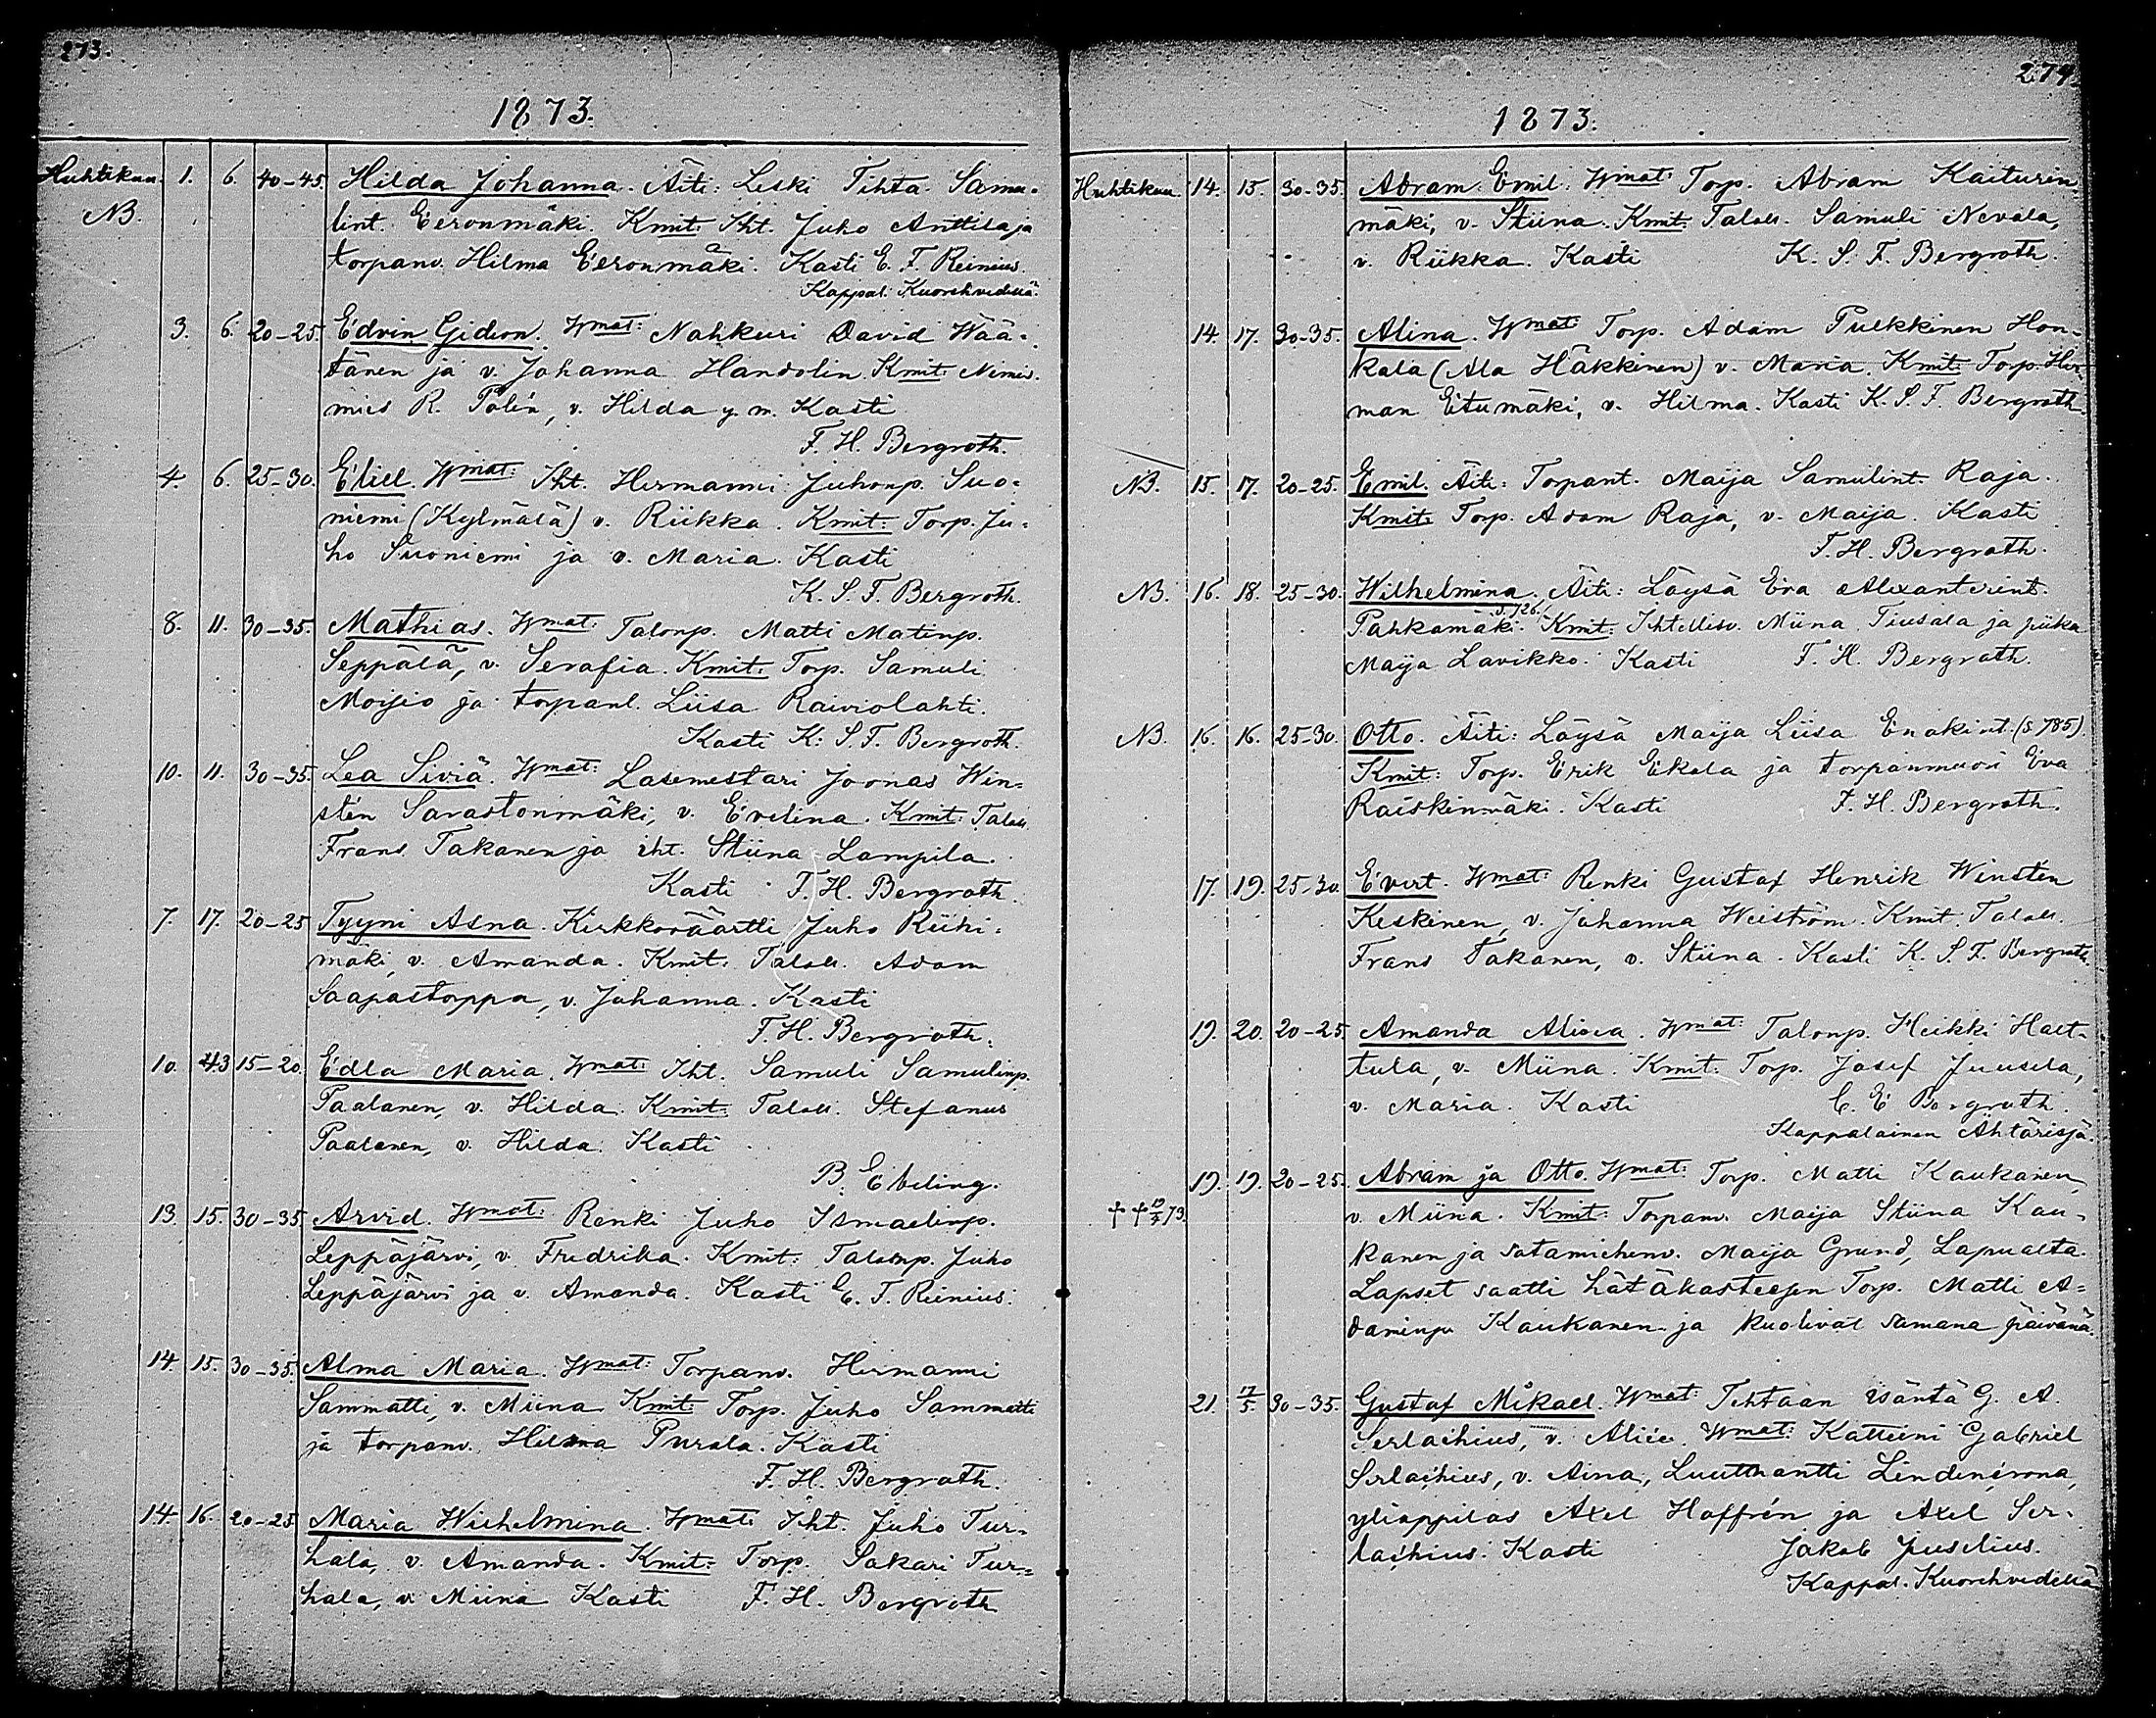 273.
1873.
Huhtikuu. 1. 6. 40-45. Hilda Johanna. Äiti: Leski Tihta Samu-
NB. lint. Eeronmäki. Kmit: Iht. Juho Anttila ja
torpanv. Hilma Eeronmäki. Kasti E. F. Reinius.
Kappal. Kuorehvedellä.
3. 6. 20-25. Edvin Gideon. Wmat: Nahkuri David Wää-
tänen ja v. Johanna Handolin. Kmit: Nimis-
mies R. Polén, v. Hilda y. m. Kasti
F. H. Bergroth.
4. 6. 25-30. Eliel. Wmat: Iht. Hermanni Juhonp. Suo-
niemi (Kylmälä) v. Riikka. Kmit: Torp. Ju-
ho Suoniemi ja v. Maria. Kasti
K. S. F. Bergroth.
8. 11. 30-35. Mathias. Wmat: Talonp. Matti Matinp.
Seppälä, v. Serafia. Kmit: Torp. Samuli
Moisio ja torpanl. Liisa Raiviolahti.
Kasti K. S. F. Bergroth.
10. 11. 30-35. Lea Siviä. Wmat: Lasimestari Joonas Win-
stén Sarastonmäki, v. Evelina. Kmit: Talol.
Frans Takanen ja iht. Stiina Lampila.
Kasti F. H. Bergroth.
7. 17. 20-25 Tyyni Asna. Kirkkoväärtti Juho Riihi-
mäki, v. Amanda. Kmit: Taloll. Adam
Saapastoppa, v. Johanna. Kasti
F. H. Bergroth.
10. 15-20. Edla Maria. Wmat: Iht. Samuli Samulinp.
Paalanen, v. Hilda. Kmit: Taloll. Stefanus
Paalanen, v. Hilda. Kasti
B. Ebeling.
13. 15. 30-35 Arvid. Wmat: Renki Juho Ismaelinp.
Leppäjärvi, v. Fredrika. Kmit: Talonp. Juho
Leppäjärvi ja v. Amanda. Kasti E. F. Reinius.
14. 15. 30-35. Alma Maria. Wmat: Torpanv. Hermanni
Sammatti, v. Miina Kmit: Torp. Juho Sammatti
ja torpanv. Hilma Pursla. Kasti
F. H. Bergroth.
14. 16. 20-25 Maria Wilhelmina. Wmat: Iht. Juho Tur-
hala, v. Amanda. Kmit: Torp. Sakari Tur-
hala, v. Miina Kasti F. H. Bergroth
274.
1873.
Huhtikuu 14. 15. 30-35. Abram Emil. Wmat: Torp. Abram Kaiturin-
mäki, v. Stiina. Kmit: Taloll. Samuli Nevala,
v. Riikka. Kasti K. S. F. Bergroth.
14. 17. 30-35. Alina. Wmat: Torp. Adam Pulkkinen Hon-
kala (Ala Häkkinen) v. Maria. Kmit: Torp. Her-
man Eitumäki, v. Hilma. Kasti K. S. F. Bergroth.
NB. 15. 17. 20-25. Emil. Äiti: Torpant. Maija Samulint. Raja.
Kmit: Torp. Adam Raja, v. Maija. Kasti
F. H. Bergroth.
NB. 16. 18. 25-30. Wilhelmina. Äiti: Löysä Eva Alexanterint.
Pahkamäki. S. 726. Kmit: Ihtellisv. Miina Tiusala ja piika
Maija Lavikko. Kasti F. H. Bergroth.
NB. 16. 16. 25-30. Otto. Äiti: Löysä Maija Liisa Enakint. (S. 785).
Kmit: Torp. Erik Ekola ja torpanmuori Eva
Raiskinmäki. Kasti F. H. Bergroth.
17. 19. 25-30. Evert. Wmat: Renki Gustaf Henrik Winstén
Keskinen, v. Johanna Weiström. Kmit. Taloll.
Frans Takanen, v. Stiina. Kasti K. S. F. Bergroth.
19. 20. 20-25. Amanda Alisia. Wmat: Talonp. Heikki Hat-
tula, v. Miina. Kmit: Torp. Josef Juusela,
v. Maria. Kasti C. E. Bergroth.
Kappalainen Ahtärissä.
19. 19. 20-25. Abram ja Otto. Wmat: Torp. Matti Kaukanen,
† † 19/4 73. v. Miina. Kmit: Torpanv. Maija Stiina Kau-
kanen ja satamiehenv. Maija Grund, Lapualta.
Lapset saatti hätäkasteesen Torp. Matti A-
daminp. Kaukanen ja kuolivat samana päivänä.
21. 17/5. 30-35. Gustaf Mikael. Wmat: Tehtaan isäntä G. A.
Serlachius, v. Alice. Wmat: Katteini Gabriel
Serlachius, v. Aina, Luutnantti Lindencrona,
ylioppilas Axel Hoffrén ja Axel Ser-
lachius. Kasti Jakob Juselius.
Kappal. Kuorehvedellä